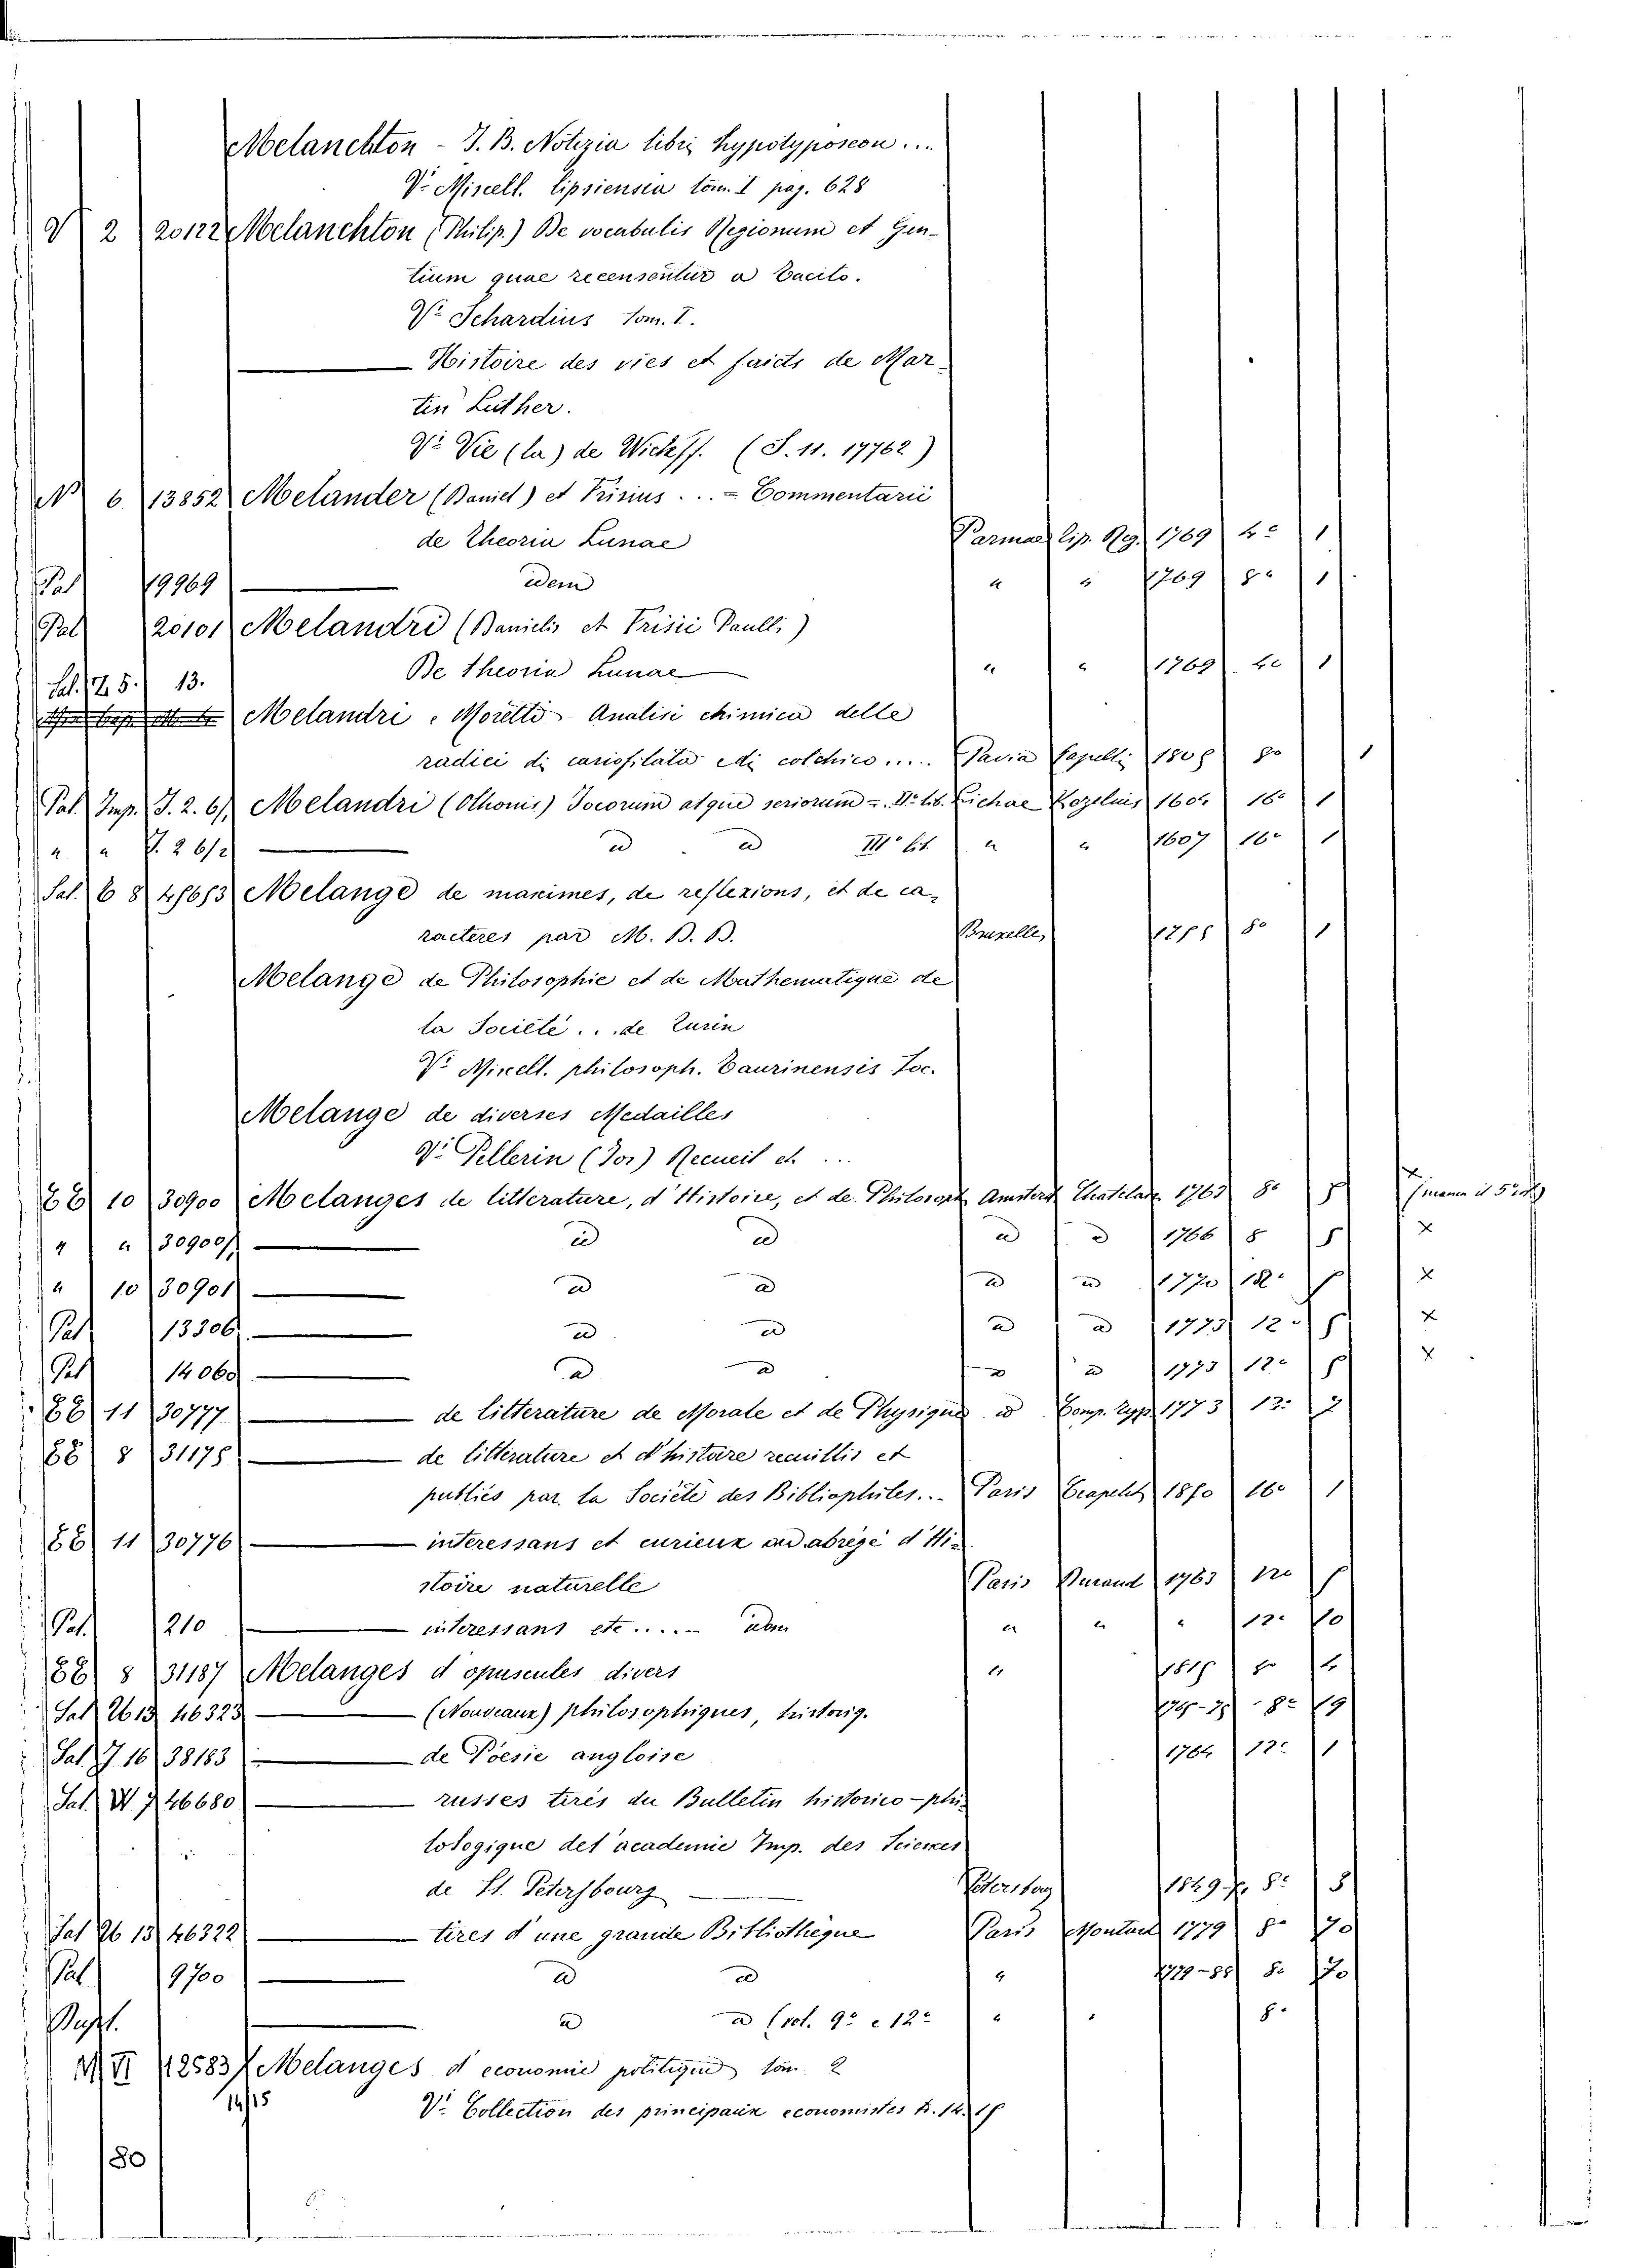 Melanchton - J. B. Notizia libri hypotyposeon ...
V. Miscell. Lipsiensia tom. I pag. 628
V 2 20122 Melanchton (Philip.) De vocabulis Regionum et Gen-
tium quae recensentur a Tacito.
V. Schardius Tom. I.
— Histoire des vies et faicts de Mar-
tin Luther.
V. Vie (la) de Wicleff. (S. 11. 17762)
N 6 13852 Melander (Daniel) et Frisius ... = Commentarii
de Theoria Lunae Parmae Tip. Reg. 1769 4° 1
Pal 19969 — idem " " 1769 8° 1
Pal 20101 Melandri (Danielis et Frisii Paulli)
De theoria Lunae " " 1769 4° 1
Sal. Z. 5. 13.
Melandri e Moretti - Analisi chimica delle
radici di cariofilata e di colchico ..... Pavia Capelli 1805 8° 1
Pal. Imp. J. 2. 6/1 Melandri (Othonis) Jocorum atque seriorum = II. lib. Lichae Kezelius 1604 16° 1
" " J. 2 6/2 — id id III° lib. " " 1607 16° 1
Sal. 6 8 48613 Melange de maximes, de reflexions, et de ca-
racteres par M. B. B. Bruxelle, 1755 8° 1
Melange de Philosophie et de Mathematique de
la Societé ... de Turin
V. Miscell. philosoph. Taurinensis Soc.
Melange de diverses Medailles
V. Pellerin (Jos) Recueil et ...
10 30900 Melanges de litterature, d'Histoire, et de Philosoph Amsterd Chatelain 1763 8° 5
" " 30900/1 — id id id id 1766 8 5 X
" 10 30901 — id id id id 1770 12° X
Pal 13306 — id id id id 1773 12° 5 X
Pal 14060 — id id id 1773 12° 5 X
11 30777 — de litterature de Morale et de Physique id Comp. Typ. 1773 12° 7
8 31178 — de litterature et d'histoire recuillis et
publiés par la Société des Bibliophiles... Paris Crapelet 1850 16° 1
11 30776 — interessans et curieux ou abregé d'Hi-
stoire naturelle Paris Durand 1763 12°
Pal. 210 — interessans etc. .... idem " " " 12° 10
8 31187 Melanges d'opuscules divers "
Sal 26 13 46323 — (Nouveaux) philosophiques, historiq. 8° 19
Sal. J. 16 38183 — de Poesie angloise 1764 12° 1
Sal. W 7 46680 — russes tirés du Bulletin historico-phi-
lologique del'academie Imp. des Sciences
de St. Petersbourg Petersburg 1849 8° 3
Sal 26 13 46322 — tires d'une grande Bibliothèque Paris Moutard 1779 8° 70
Pal 9700 — id id " 1779-88 8° 70
— id id (vol. 9° e 12° " 8°
M II 12583 Melanges d'economie politique tom. 2
14/15 V. Collection des principaux economistes t. 14. 15
180